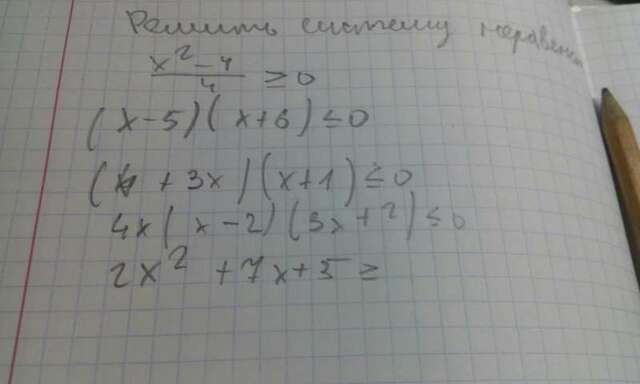 Решить систему неравенс
x² - 4 / 4 ≥ 0
(x-5)(x+6) ≤ 0
(4 + 3x)(x+1) ≤ 0
4x(x-2)(3x+2) ≤ 0
2x² + 7x + 5 ≥